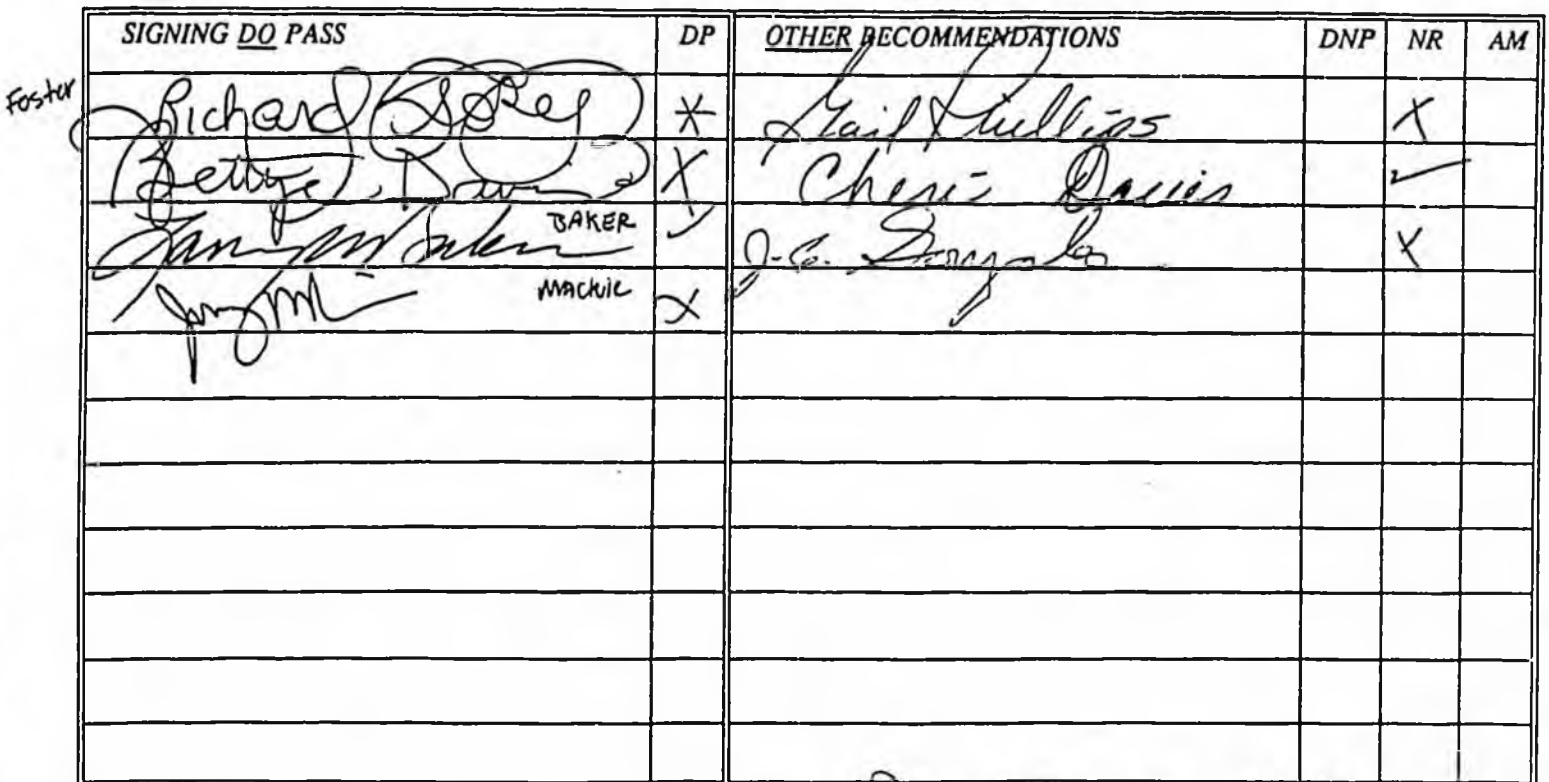 SIGNING DO PASS DP OTHER RECOMMENDATIONS DNP NR AM
Foster Richard Foster X Gail Phillips X
Bettye Davis X Cheri Davis ✓
BAKER ✓ J.C. Gonzales X
Jerry M MACKIE X